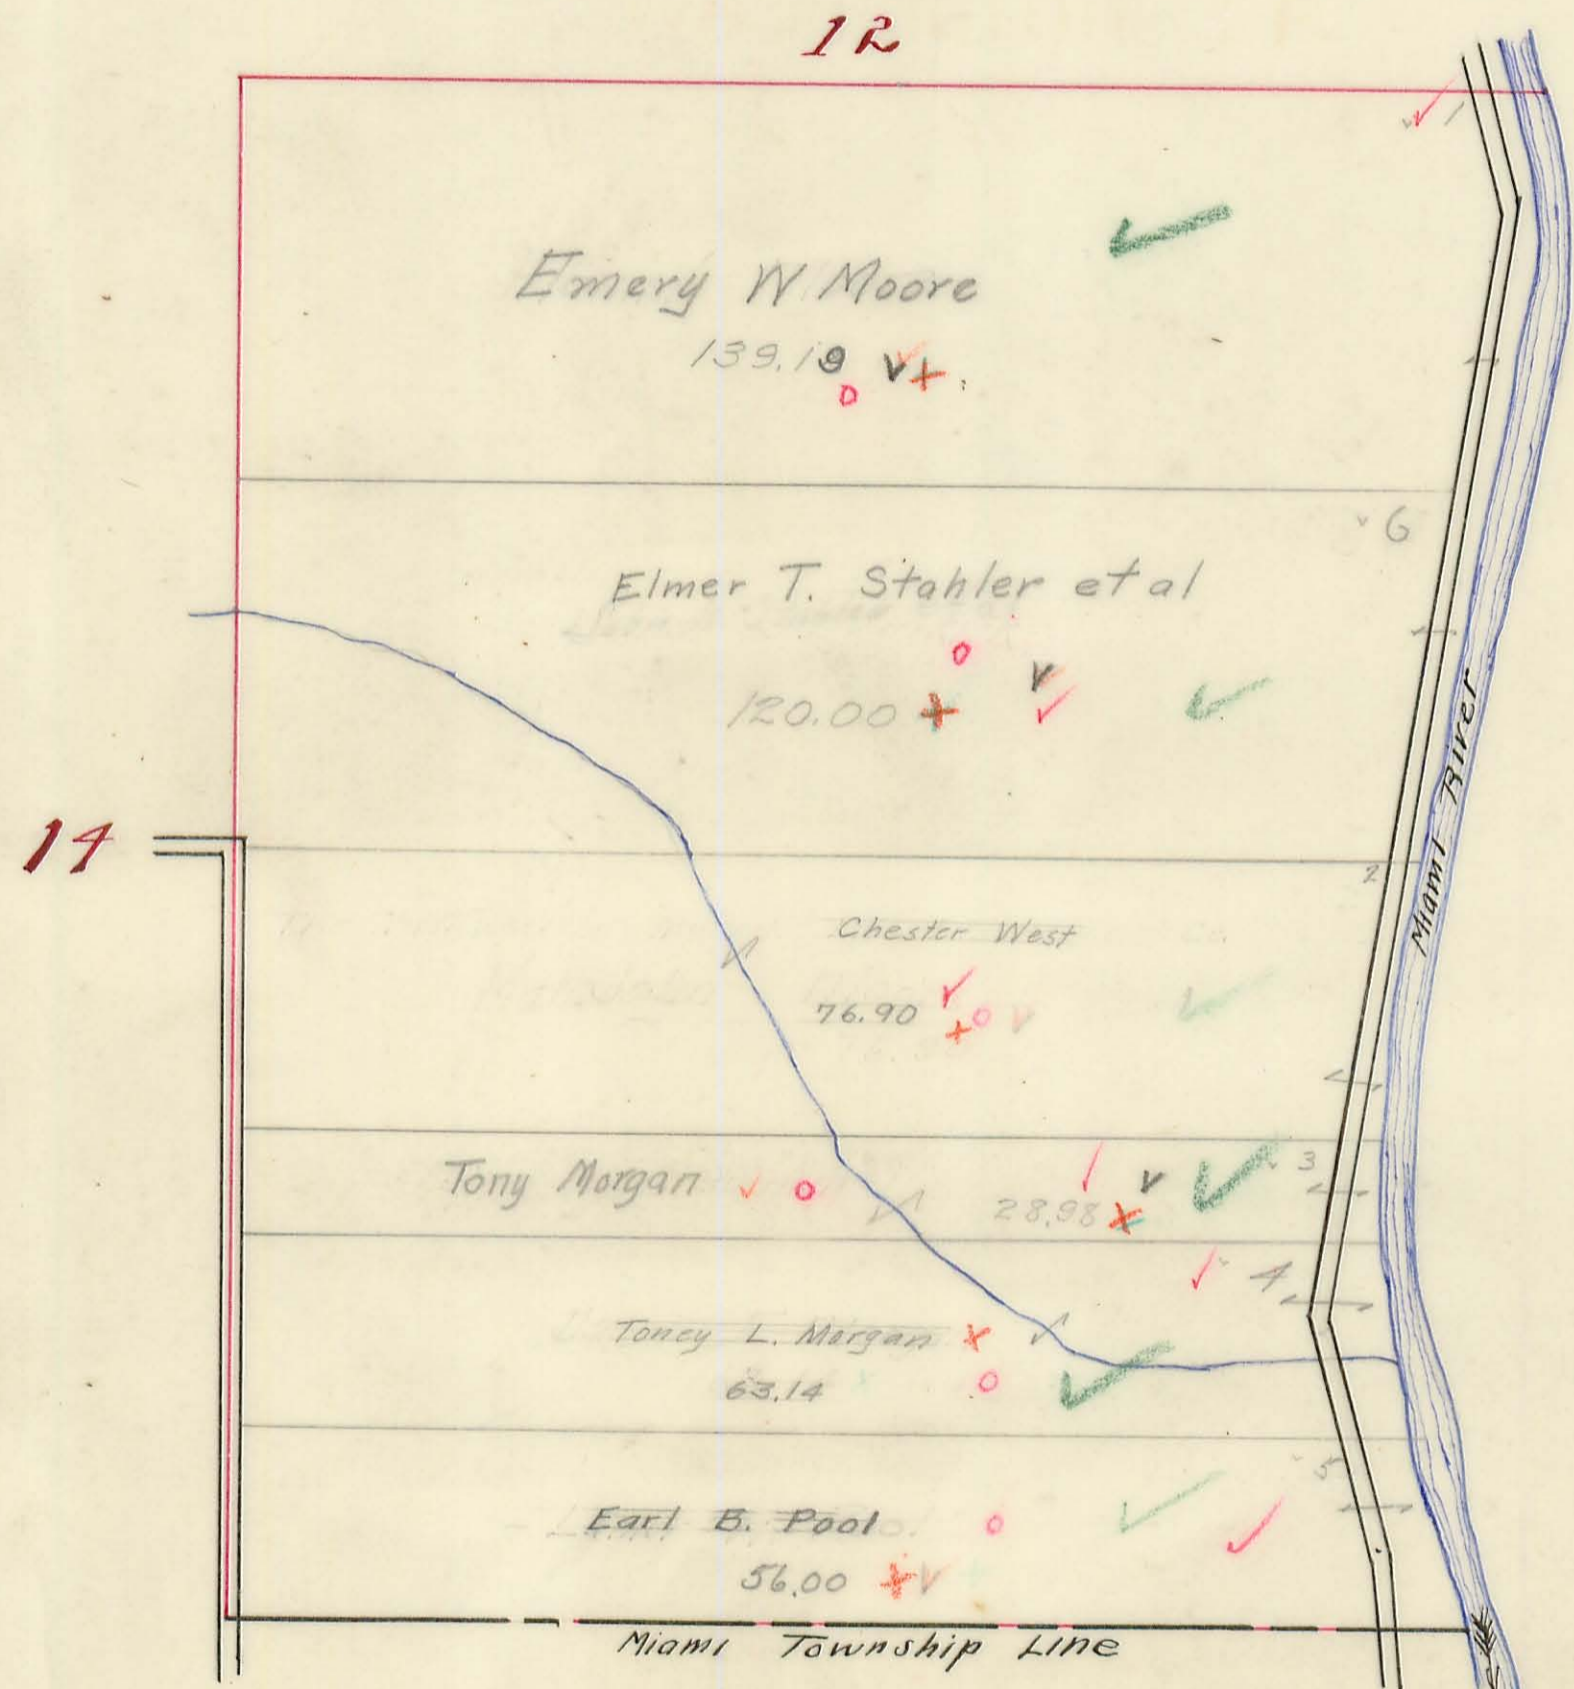 12
1
Emery W Moore
139.19
6
Elmer T. Stahler et al
120.00
Miami River
14
2
Chester West
76.90
Tony Morgan
3
28.98
4
Toney L. Morgan
63.14
5
Earl B. Pool
56.00
Miami Township Line